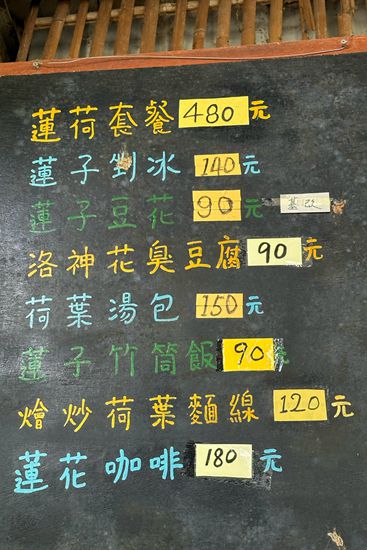 蓮荷套餐480元
蓮子剉冰140元
蓮子豆花90元
洛神花臭豆腐90元
荷葉湯包150元
蓮子竹筒飯90元
燴炒荷葉麵線120元
蓮花咖啡180元